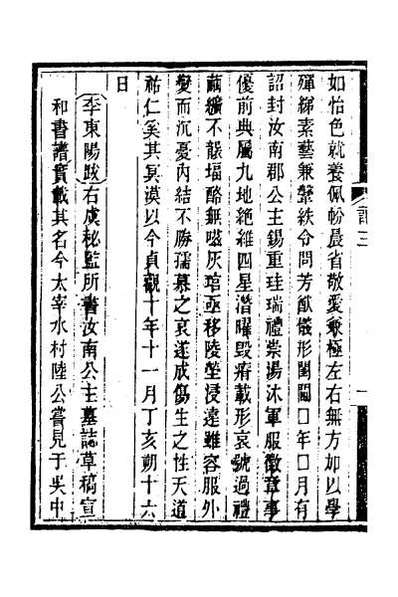 如怡色就養佩帉晨省敬愛兼極左右無方加以學
殫綈素藝兼鞶紩令問芳猷儀形閨閫□年□月有
詔封汝南郡公主錫重珪瑞禮崇湯沐車服徽章事
優前典屬九地絕維四星潛曜毀瘠載形哀號過禮
繭纊不襲塩酪無嗞灰琯亟移陵塋浸遠雖容服外
變而沉憂內結不勝孺慕之哀遂成傷生之性天道
祐仁奚其冥漠以今貞觀十年十一月丁亥朔十六
日
李東陽跋右虞秘監所書汝南公主墓誌草稿宣
和書譜實載其名今太宰水村陸公嘗見于吳中